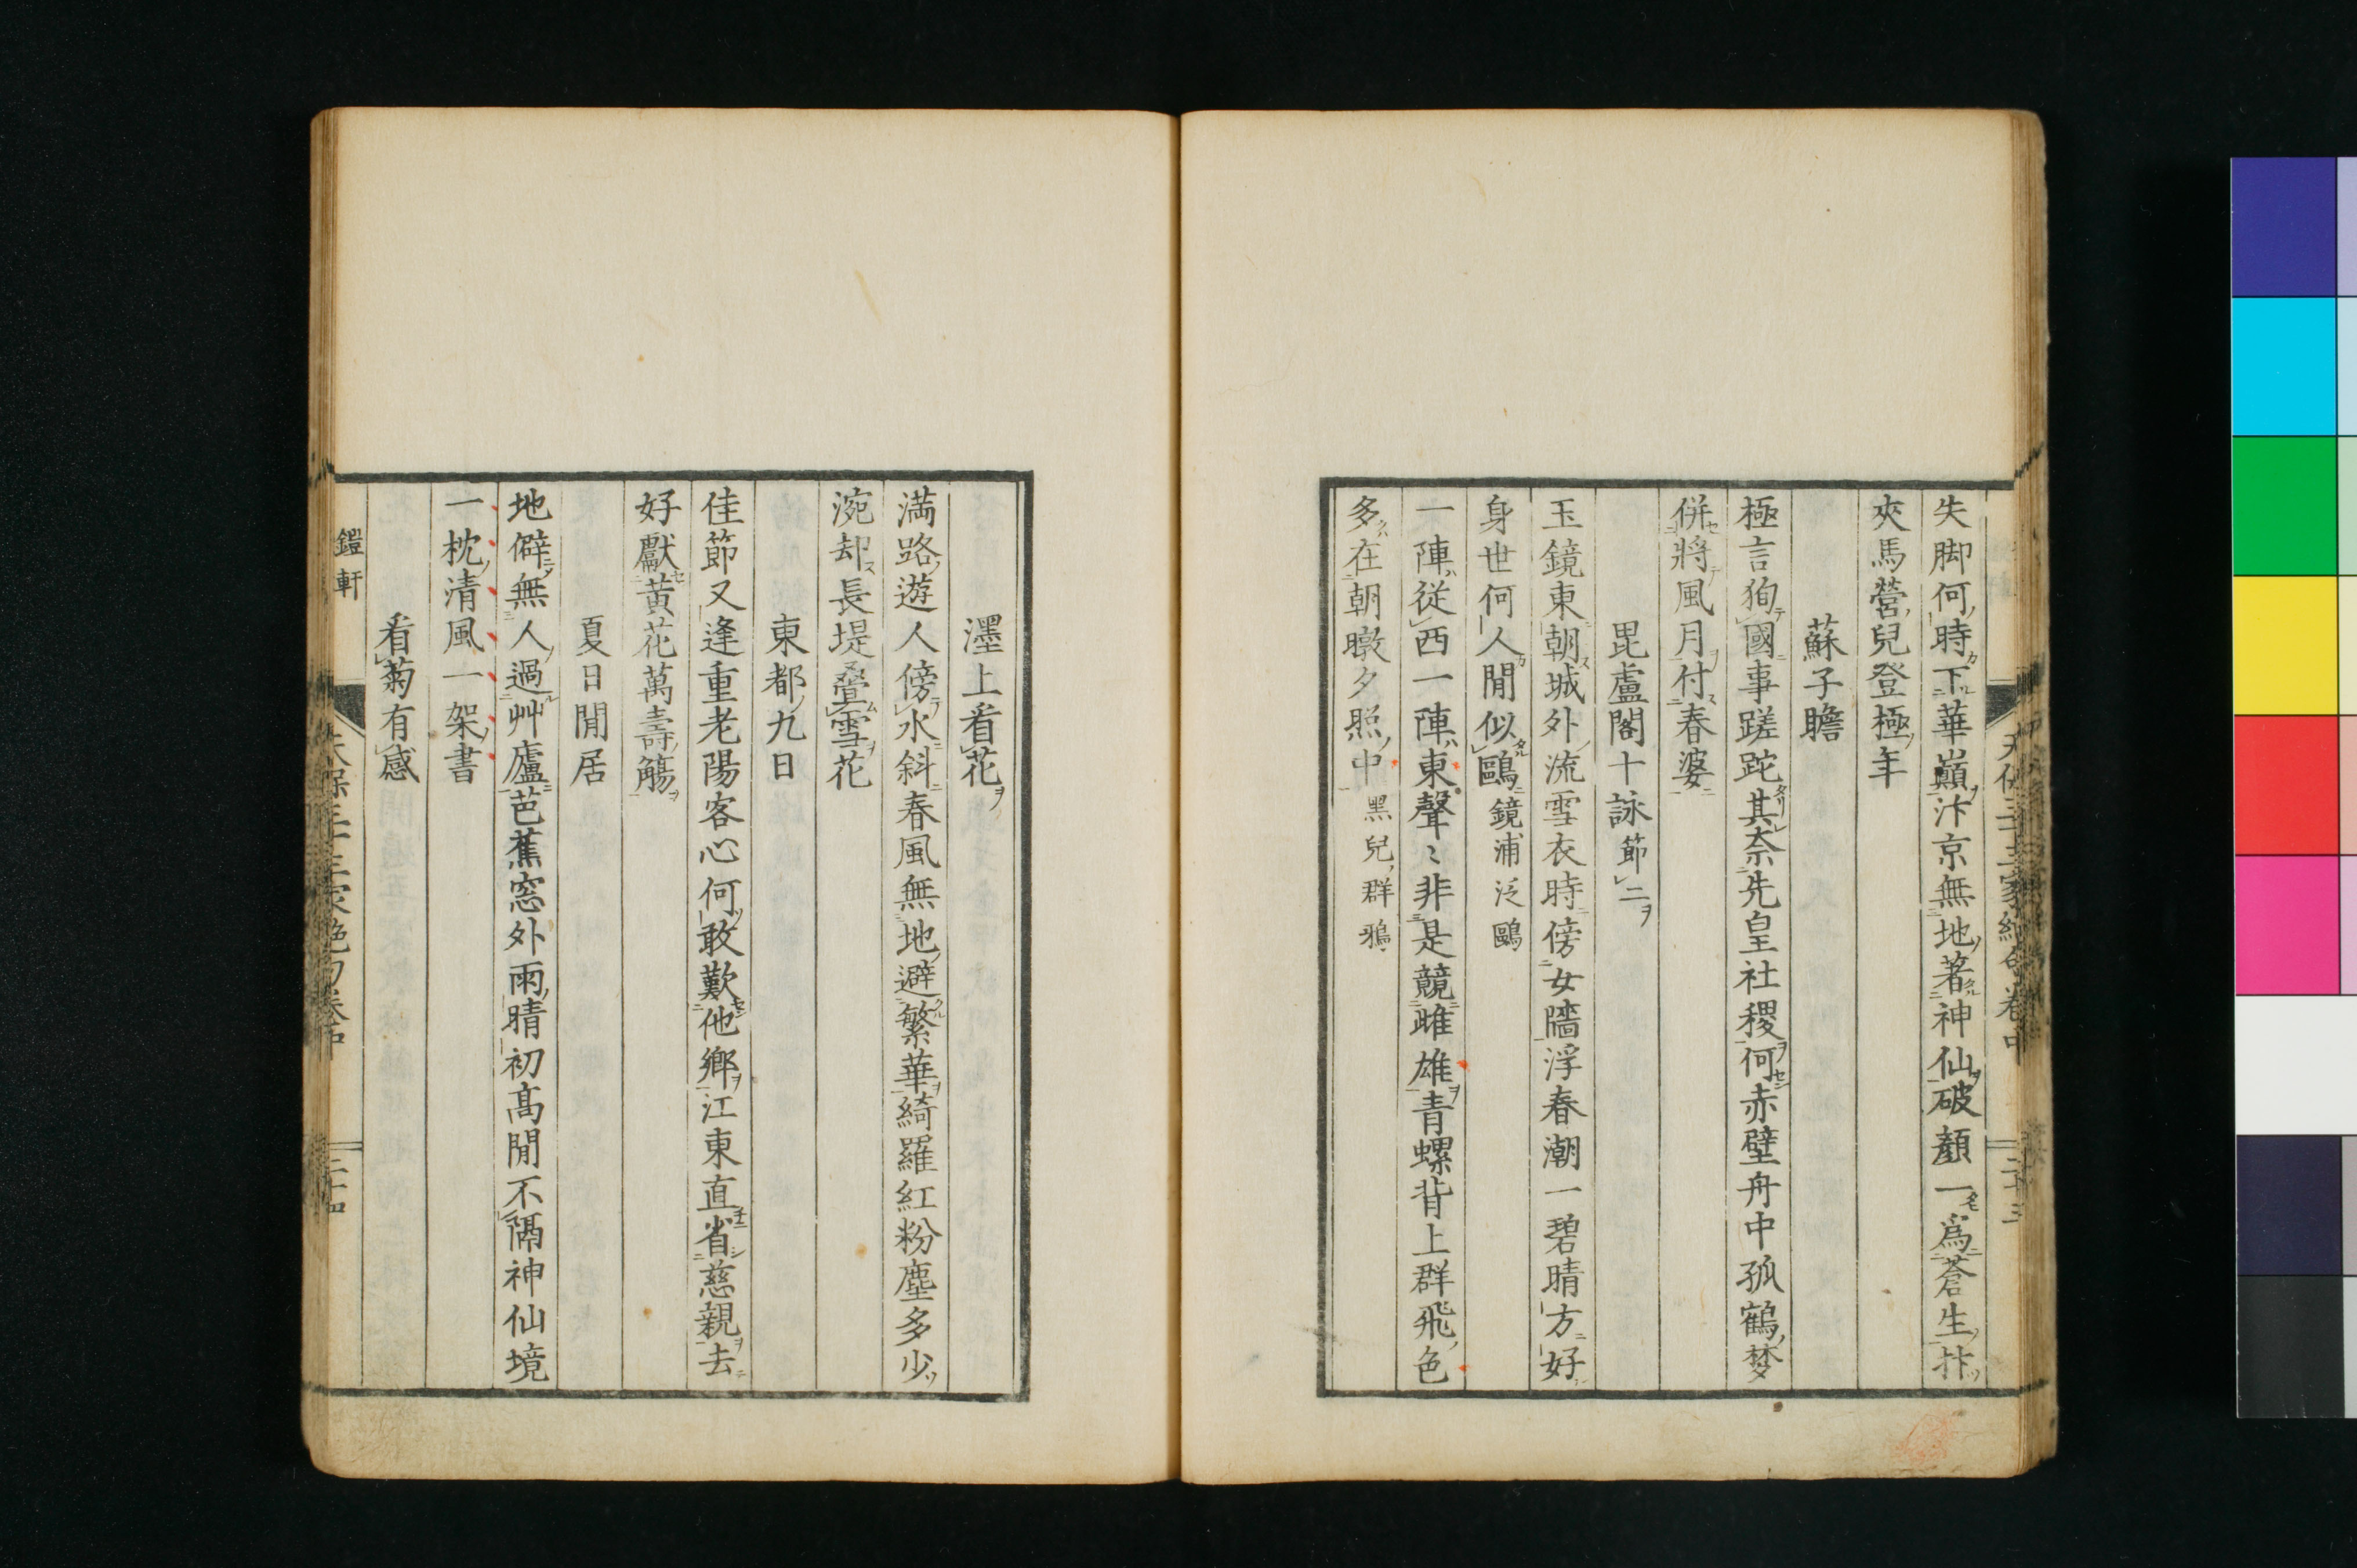 失脚何時下華巔汴京無地著神仙破顏一爲蒼生抃
夾馬營兒登極年
蘇子瞻
極言狥國事蹉跎其奈先皇社稷何赤壁舟中孤鶴梦
併將風月付春婆
毘盧閣十詠節二
玉鏡東朝城外流雪衣時傍女牆浮春潮一碧晴方好
身世何人閒似鷗鏡浦泛鷗
一陣從西一陣東聲〻非是競雌雄青螺背上群飛色
多在朝暾夕照中黑兒群鴉
墨上看花
満路遊人傍水斜春風無地避繁華綺羅紅粉塵多少
涴却長堤疊雪花
東都九日
佳節又逢重老陽客心何敢歎他鄉江東直省慈親去
好獻黃花萬壽觴
夏日閒居
地僻無人過艸廬芭蕉窓外雨晴初髙閒不隔神仙境
一枕清風一架書
看菊有感
鎧軒